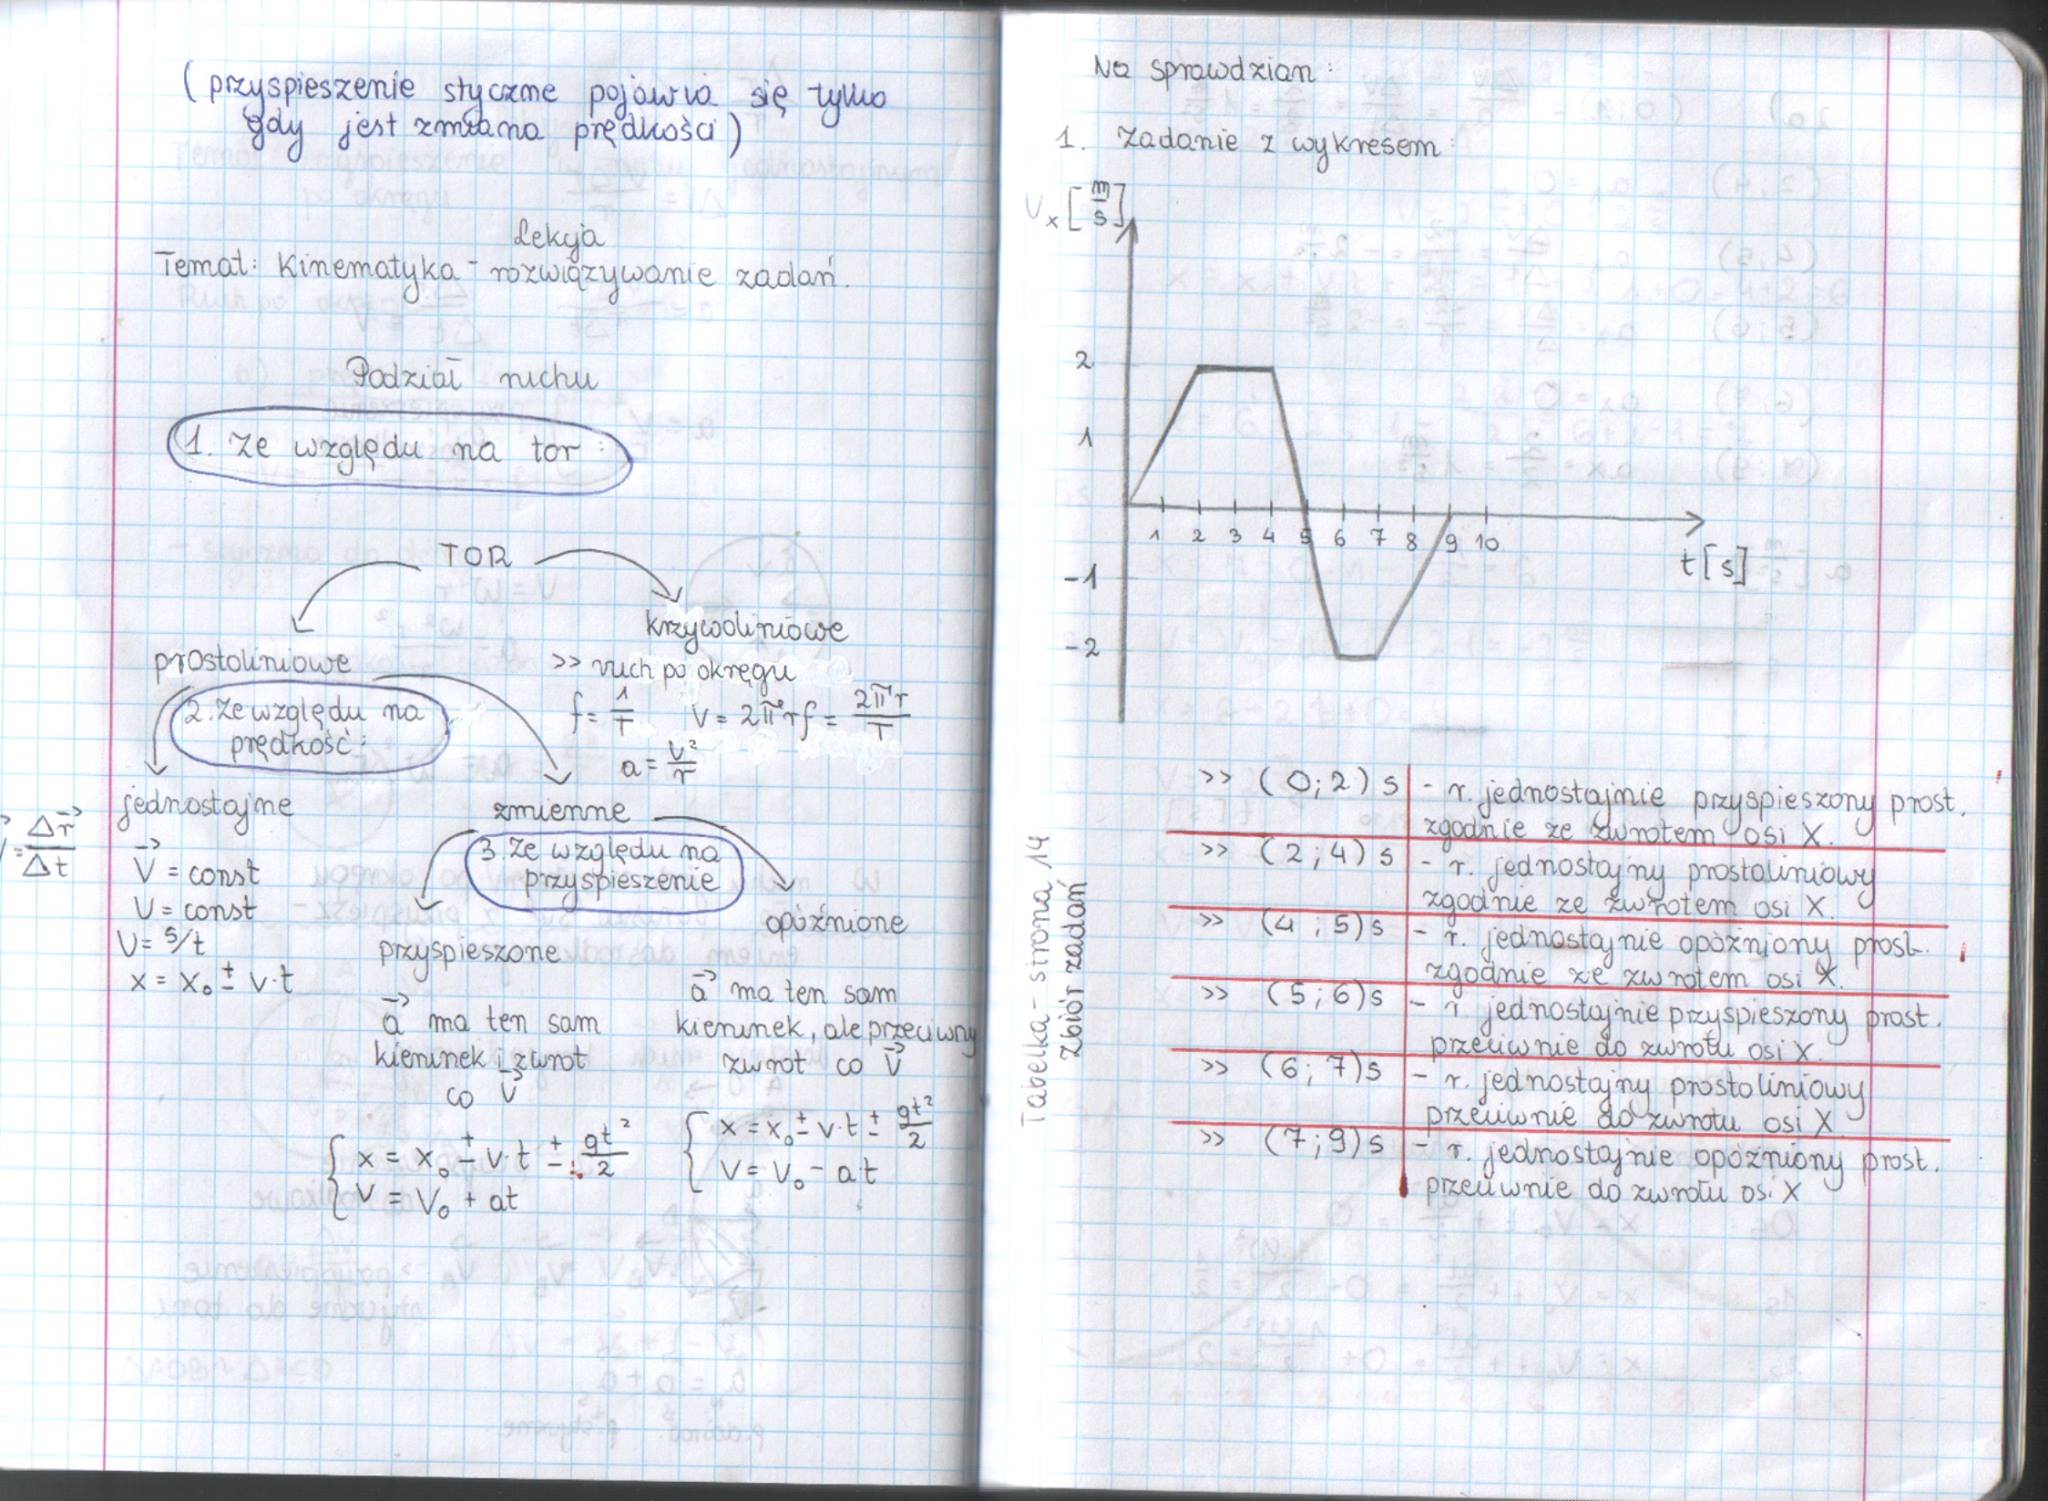 (przyspieszenie styczne pojawia się tylko
gdy jest zmiana prędkości)
Lekcja
Temat: Kinematyka - rozwiązywanie zadań.
Podział ruchu
1. Ze względu na tor:
TOR
prostoliniowe
krzywoliniowe
>> ruch po okręgu
f = 1/T   V = 2πrf = 2πr/T
a = V²/r
2. Ze względu na
prędkość:
jednostajne
V⃗ = Δr⃗/Δt
V⃗ = const
V = const
V = s/t
x = x₀ ± v·t
zmienne
3. Ze względu na
przyspieszenie
przyspieszone
a⃗ ma ten sam
kierunek i zwrot
co V⃗
x = x₀ ± v·t ± gt²/2
V = V₀ + at
opóźnione
a⃗ ma ten sam
kierunek, ale przeciwny
zwrot co V⃗
x = x₀ ± v·t ± gt²/2
V = V₀ - a·t
Na sprawdzian:
1. Zadanie z wykresem:
Vx [m/s]
2
1
-1
-2
1 2 3 4 5 6 7 8 9 10
t[s]
Tabelka - strona 14
zbiór zadań
>> (0;2)s - r. jednostajnie przyspieszony prost.
zgodnie ze zwrotem osi X.
>> (2;4)s - r. jednostajny prostoliniowy
zgodnie ze zwrotem osi X.
>> (4;5)s - r. jednostajnie opóźniony prost.
zgodnie ze zwrotem osi X.
>> (5;6)s - r. jednostajnie przyspieszony prost.
przeciwnie do zwrotu osi X.
>> (6;7)s - r. jednostajny prostoliniowy
przeciwnie do zwrotu osi X
>> (7;9)s - r. jednostajnie opóźniony prost.
przeciwnie do zwrotu osi X